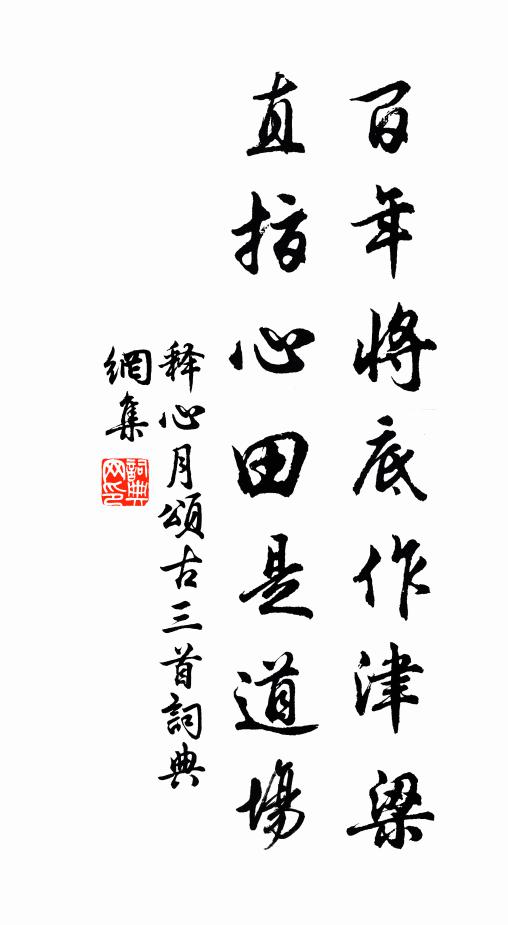 百年將底作津梁
直指心田是道場
释心月頌古三首詞典
網集
詞典網印